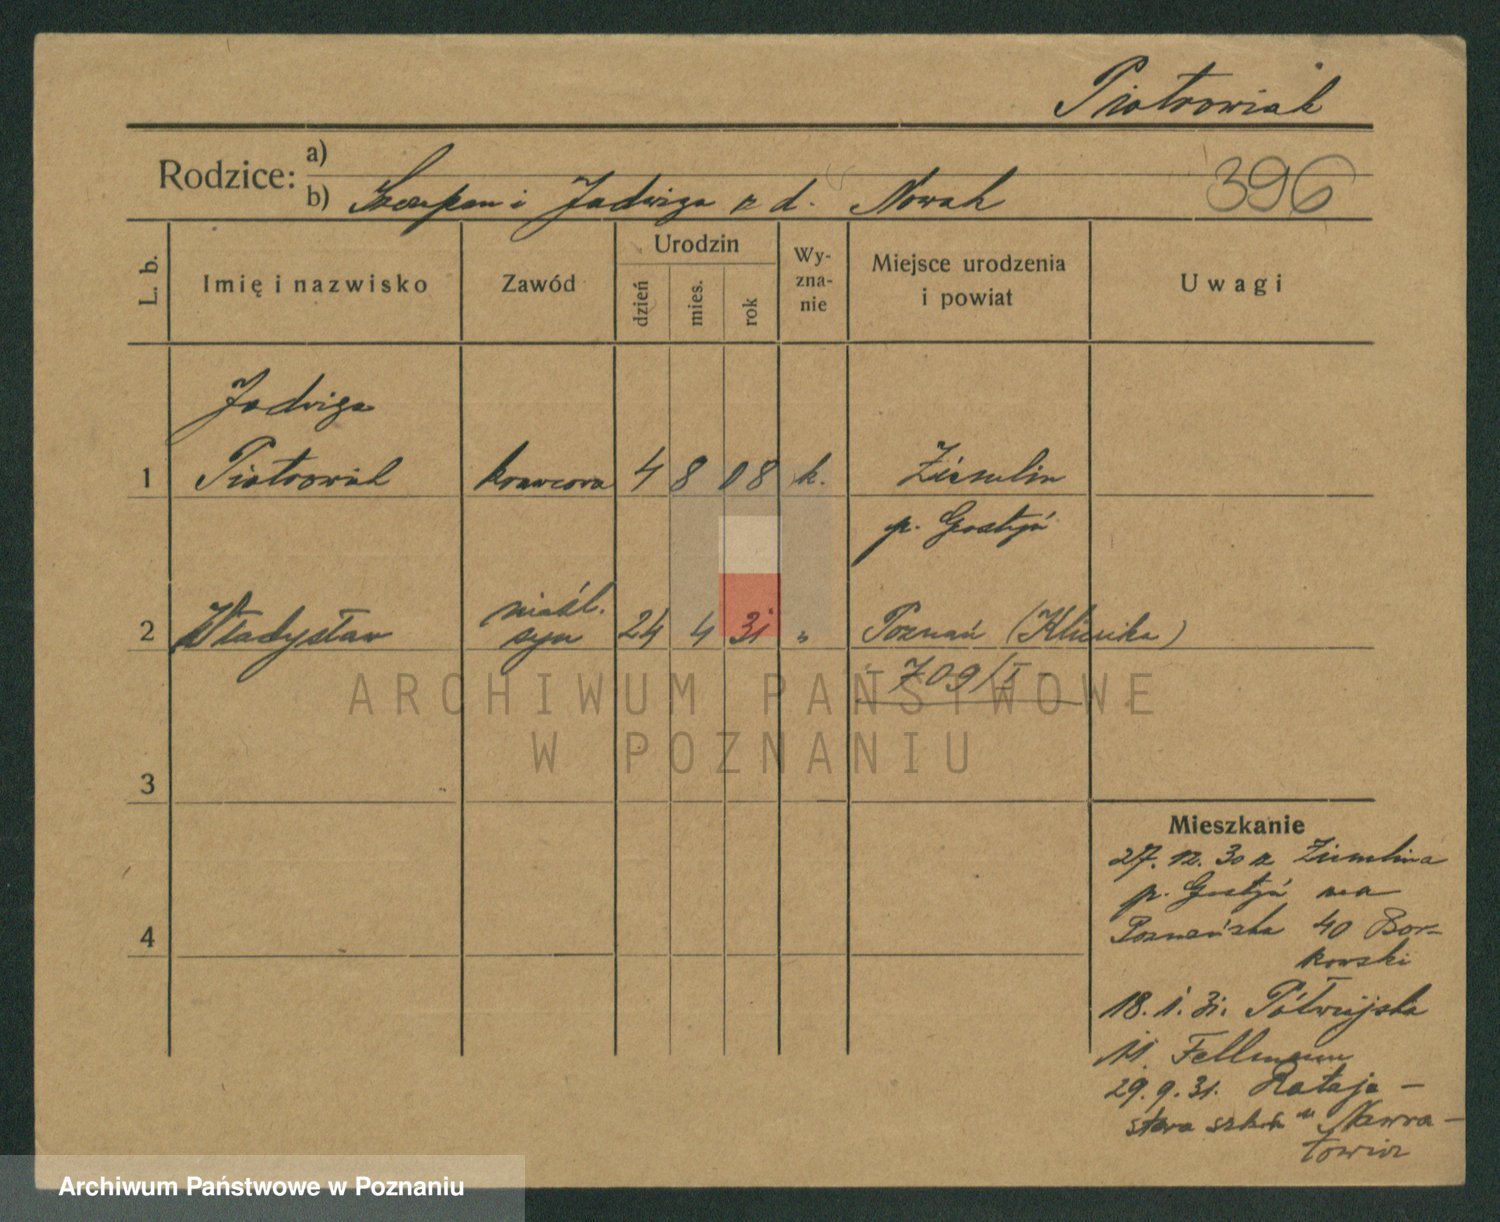 Piotrowiak
Rodzice: a)
b) Szczepan i Jadwiga z d. Nowak
396
L. b.
Imię i nazwisko
Zawód
Urodzin
dzień
mies.
rok
Wy-
zna-
nie
Miejsce urodzenia
i powiat
Uwagi
Jadwiga
1 Piotrowiak krawcowa 4 8 08 k. Ziemlin
p. Gostyń
nieśl.
2 Władysław syn 24 4 31 „ Poznań (Klinika)
709/I
3
4
Mieszkanie
27. 12. 30 z Ziemlina
p. Gostyń na
Poznańska 40 Bor-
kowski
18. 1. 31. Półwiejska
11 Fellmann
29. 9. 31. Rataje –
stara szkoła Nawra-
ARCHIWUM PAŃSTWOWE
W POZNANIU
Archiwum Państwowe w Poznaniu